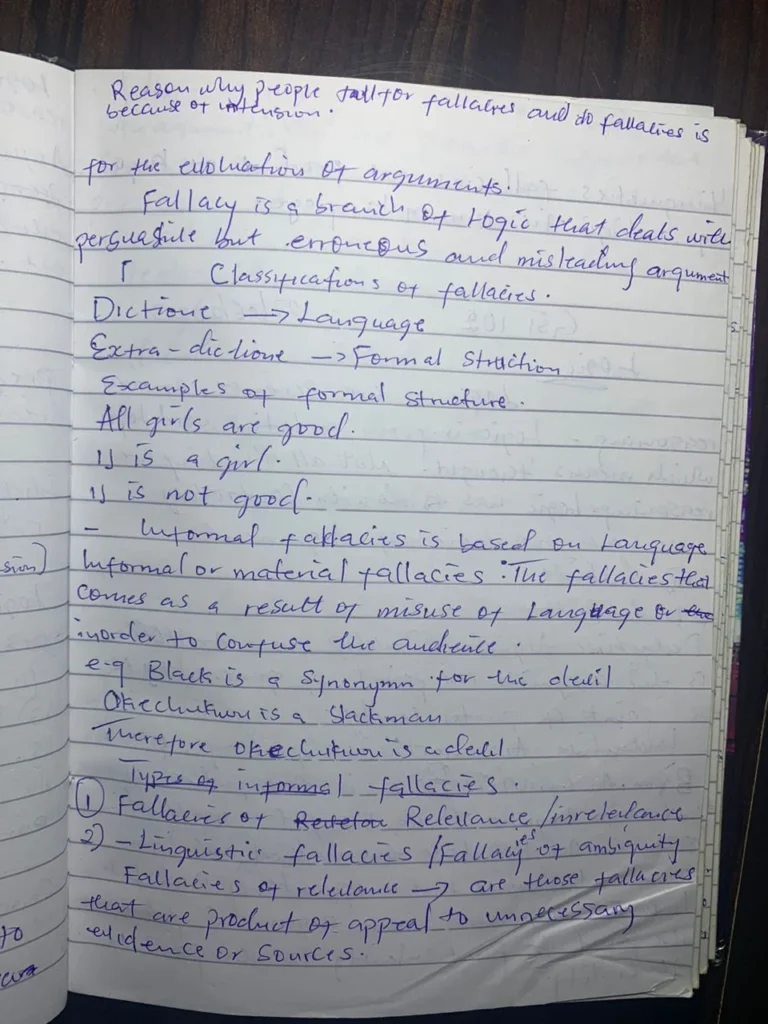 Reason why people fall for fallacies and do fallacies is
because of intension.
for the evoluation of arguments.
Fallacy is a branch of Logic that deals with
persuasive but erroneous and misleading argument
Classifications of fallacies.
Dictione → Language
Extra-dictione → Formal Struction
Examples of formal structure.
All girls are good.
is a girl.
is not good.
- Informal fallacies is based on Language
Informal or material fallacies: The fallacies that
comes as a result of misuse of Language or the
inorder to confuse the audience.
e-g Black is a Synonymn for the devil
Okechukwu is a blackman
Therefore Okechukwu is a devil
Types of informal fallacies.
① Fallacies of Relevance/inrelevance
2) - Linguistic fallacies / Fallacies of ambiguity
Fallacies of relevance → are those fallacies
that are product of appeal to unnecessary
evidence or sources.
sion)
to